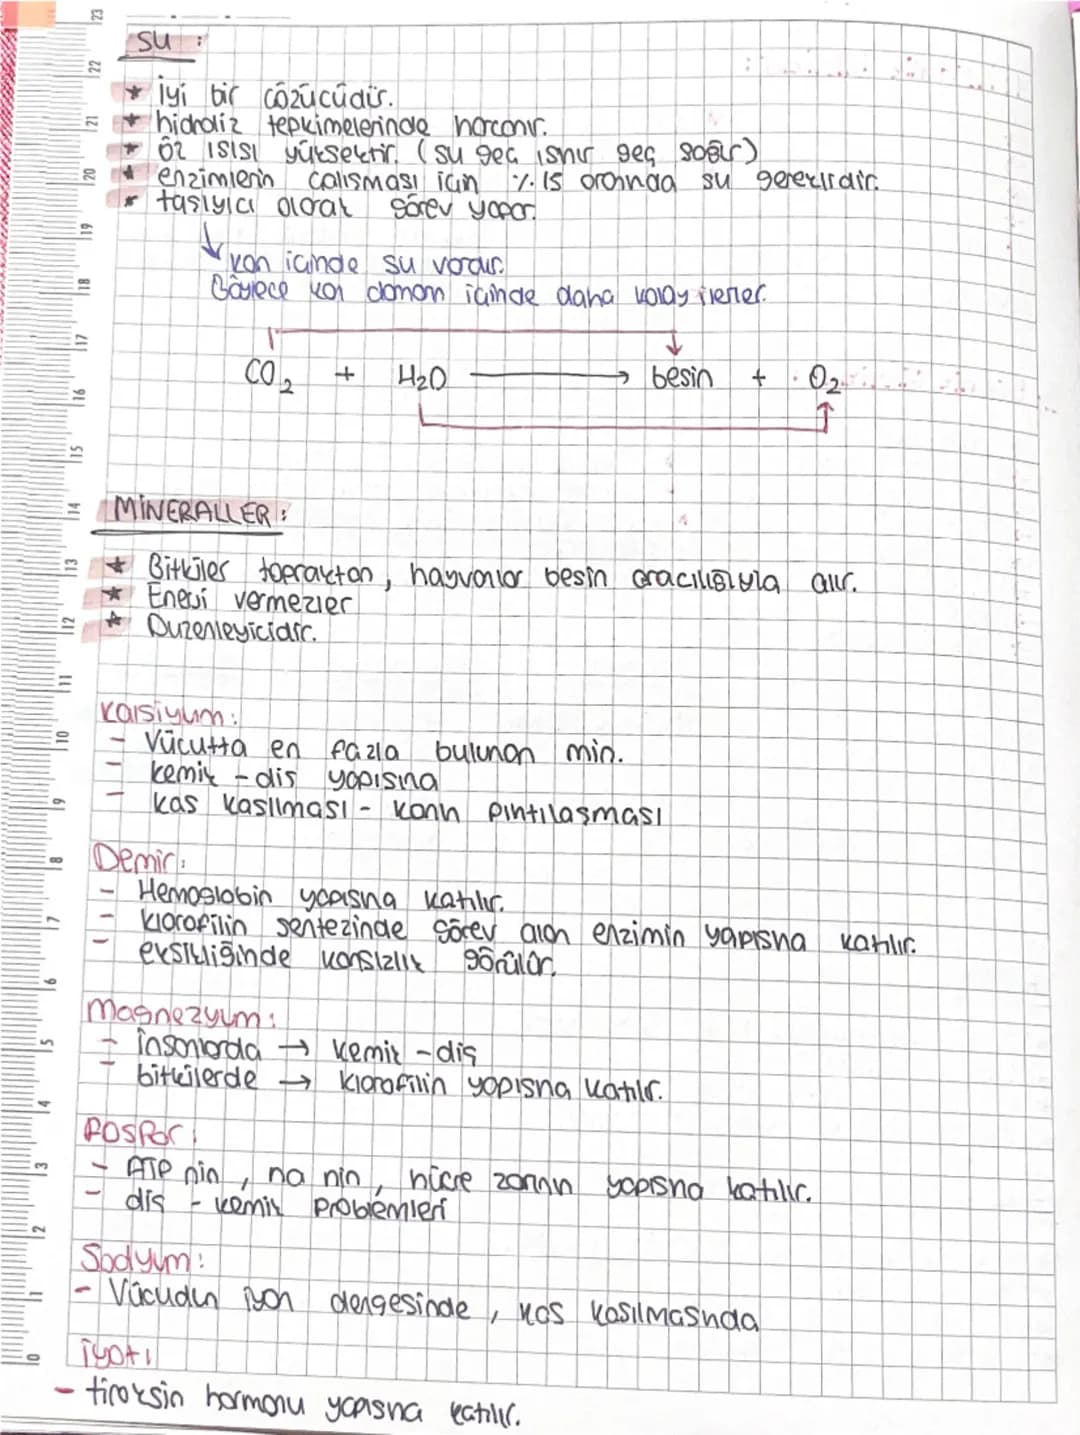 SU :
★ İyi bir çözücüdür.
★ hidroliz tepkimelerinde harcanır.
★ öz ısısı yüksektir. (su geç ısınır geç soğur)
★ enzimlerin çalışması için %15 oranında su gereklidir.
★ taşıyıcı olarak görev yapar.
kan içinde su vardır.
Böylece kan damarı içinde daha kolay ilerler.
CO₂ + H₂O → besin + O₂
MİNERALLER :
★ Bitkiler topraktan, hayvanlar besin aracılığıyla alır.
★ Enerji vermezler
★ Düzenleyicidir.
Kalsiyum:
- Vücutta en fazla bulunan min.
- kemik - diş yapısına
- kas kasılması - kanın pıhtılaşması
Demir:
- Hemoglobin yapısına katılır.
- klorofilin sentezinde görev alan enzimin yapısına katılır.
- eksikliğinde kansızlık görülür.
Magnezyum:
- İnsanlarda → kemik - diş
- bitkilerde → klorofilin yapısına katılır.
FOSFOR:
- ATP nin, na nın, hücre zarının yapısına katılır.
- diş - kemik problemleri
Sodyum:
- Vücudun iyon dengesinde, kas kasılmasında
İyot:
- tiroksin hormonu yapısına katılır.
23
22
21
20
19
18
17
16
15
14
13
12
11
10
9
8
7
6
5
4
3
2
1
0